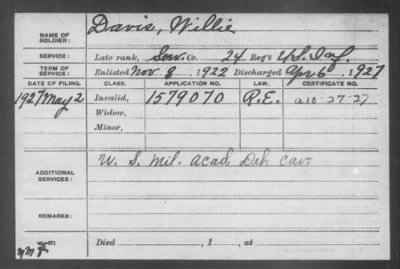 NAME OF SOLDIER: Davis, Willie
SERVICE: Late rank, Serv. Co. 24 Reg't U.S. Inf.
TERM OF SERVICE: Enlisted Nov 8, 1922 Discharged Apr 6, 1927
DATE OF FILING. CLASS. APPLICATION NO. LAW. CERTIFICATE NO.
1927 May 2 Invalid, 1579070 R.E. a10-27-27
Widow,
Minor,
ADDITIONAL SERVICES: U. S. Mil. Acad. Det. Cav.
REMARKS:
Died , 1 , at